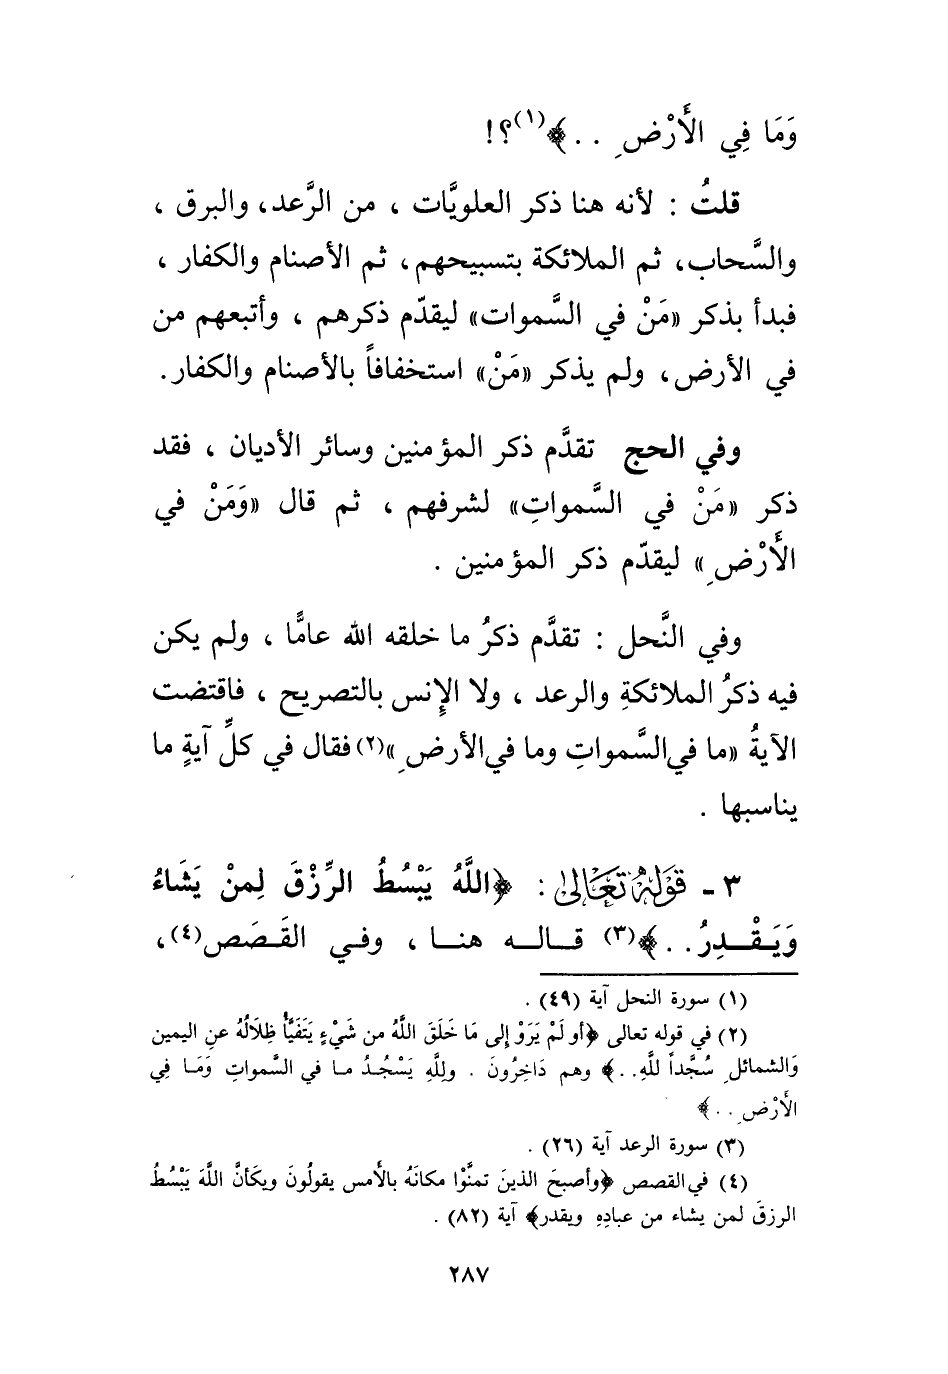 وَمَا فِي الأَرْضِ . . ﴾(١)؟!
قلتُ : لأنه هنا ذكر العلويَّات ، من الرَّعد، والبرق ،
والسَّحاب، ثم الملائكة بتسبيحهم، ثم الأصنام والكفار ،
فبدأ بذكر «مَنْ في السَّموات» ليقدّم ذكرهم ، وأتبعهم من
في الأرض، ولم يذكر «مَنْ» استخفافاً بالأصنام والكفار.
وفي الحج تقدَّم ذكر المؤمنين وسائر الأديان ، فقد
ذكر «مَنْ في السَّمواتِ» لشرفهم ، ثم قال «وَمَنْ في
الأَرْضِ» ليقدّم ذكر المؤمنين .
وفي النَّحل : تقدَّم ذكرُ ما خلقه الله عامًّا ، ولم يكن
فيه ذكرُ الملائكةِ والرعد ، ولا الإِنس بالتصريح ، فاقتضت
الآيةُ «ما في السَّمواتِ وما في الأرضِ»(٢) فقال في كلِّ آيةٍ ما
يناسبها .
٣ - قَوْلُهُ تَعَالىٰ : ﴿اللَّهُ يَبْسُطُ الرِّزْقَ لِمنْ يَشَاءُ
وَيَـقْـدِرُ . . ﴾(٣) قـالـه هنـا ، وفـي القَصَص(٤)،
(١) سورة النحل آية (٤٩) .
(٢) في قوله تعالى ﴿أو لَمْ يَرَوْ إلى مَا خَلَقَ اللَّهُ من شَيْءٍ يَتَفَيَّأُ ظِلَالُهُ عنِ اليمين
وَالشمائلِ سُجَّداً للَّهِ. . ﴾ وهم دَاخِرُونَ . وللَّهِ يَسْجُـدُ مـا في السَّمواتِ وَمَا فِي
الأَرْضِ . . ﴾
(٣) سورة الرعد آية (٢٦) .
(٤) في القصص ﴿وأصبحَ الذينَ تمنَّوْا مكانَهُ بالأَمس يقولُونَ ويكَأنَّ اللَّهَ يَبْسُطُ
الرزقَ لمن يشاء من عبادِهِ ويقدر﴾ آية (٨٢) .
٢٨٧